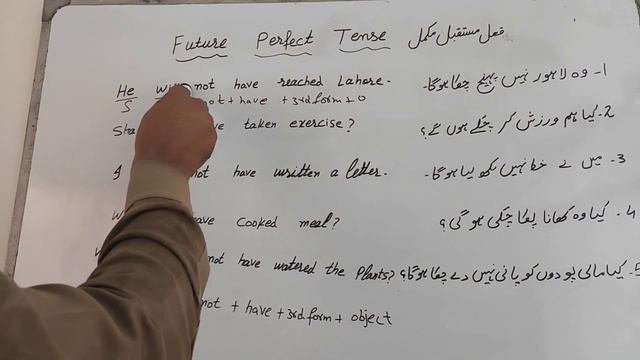 Future Perfect Tense فعل مستقبل مکمل
He not have reached Lahore. 1- وہ لاہور نہیں پہنچ چکا ہوگا۔
S not + have + 3rd form + O
taken exercise? 2- کیا ہم ورزش کر چکے ہوں گے؟
not have written a letter. 3- میں نے خط نہیں لکھ لیا ہوگا۔
Cooked meal? 4- کیا وہ کھانا پکا چکی ہوگی؟
not have watered the Plants? 5- کیا مالی پودوں کو پانی نہیں دے چکا ہوگا؟
not + have + 3rd form + object